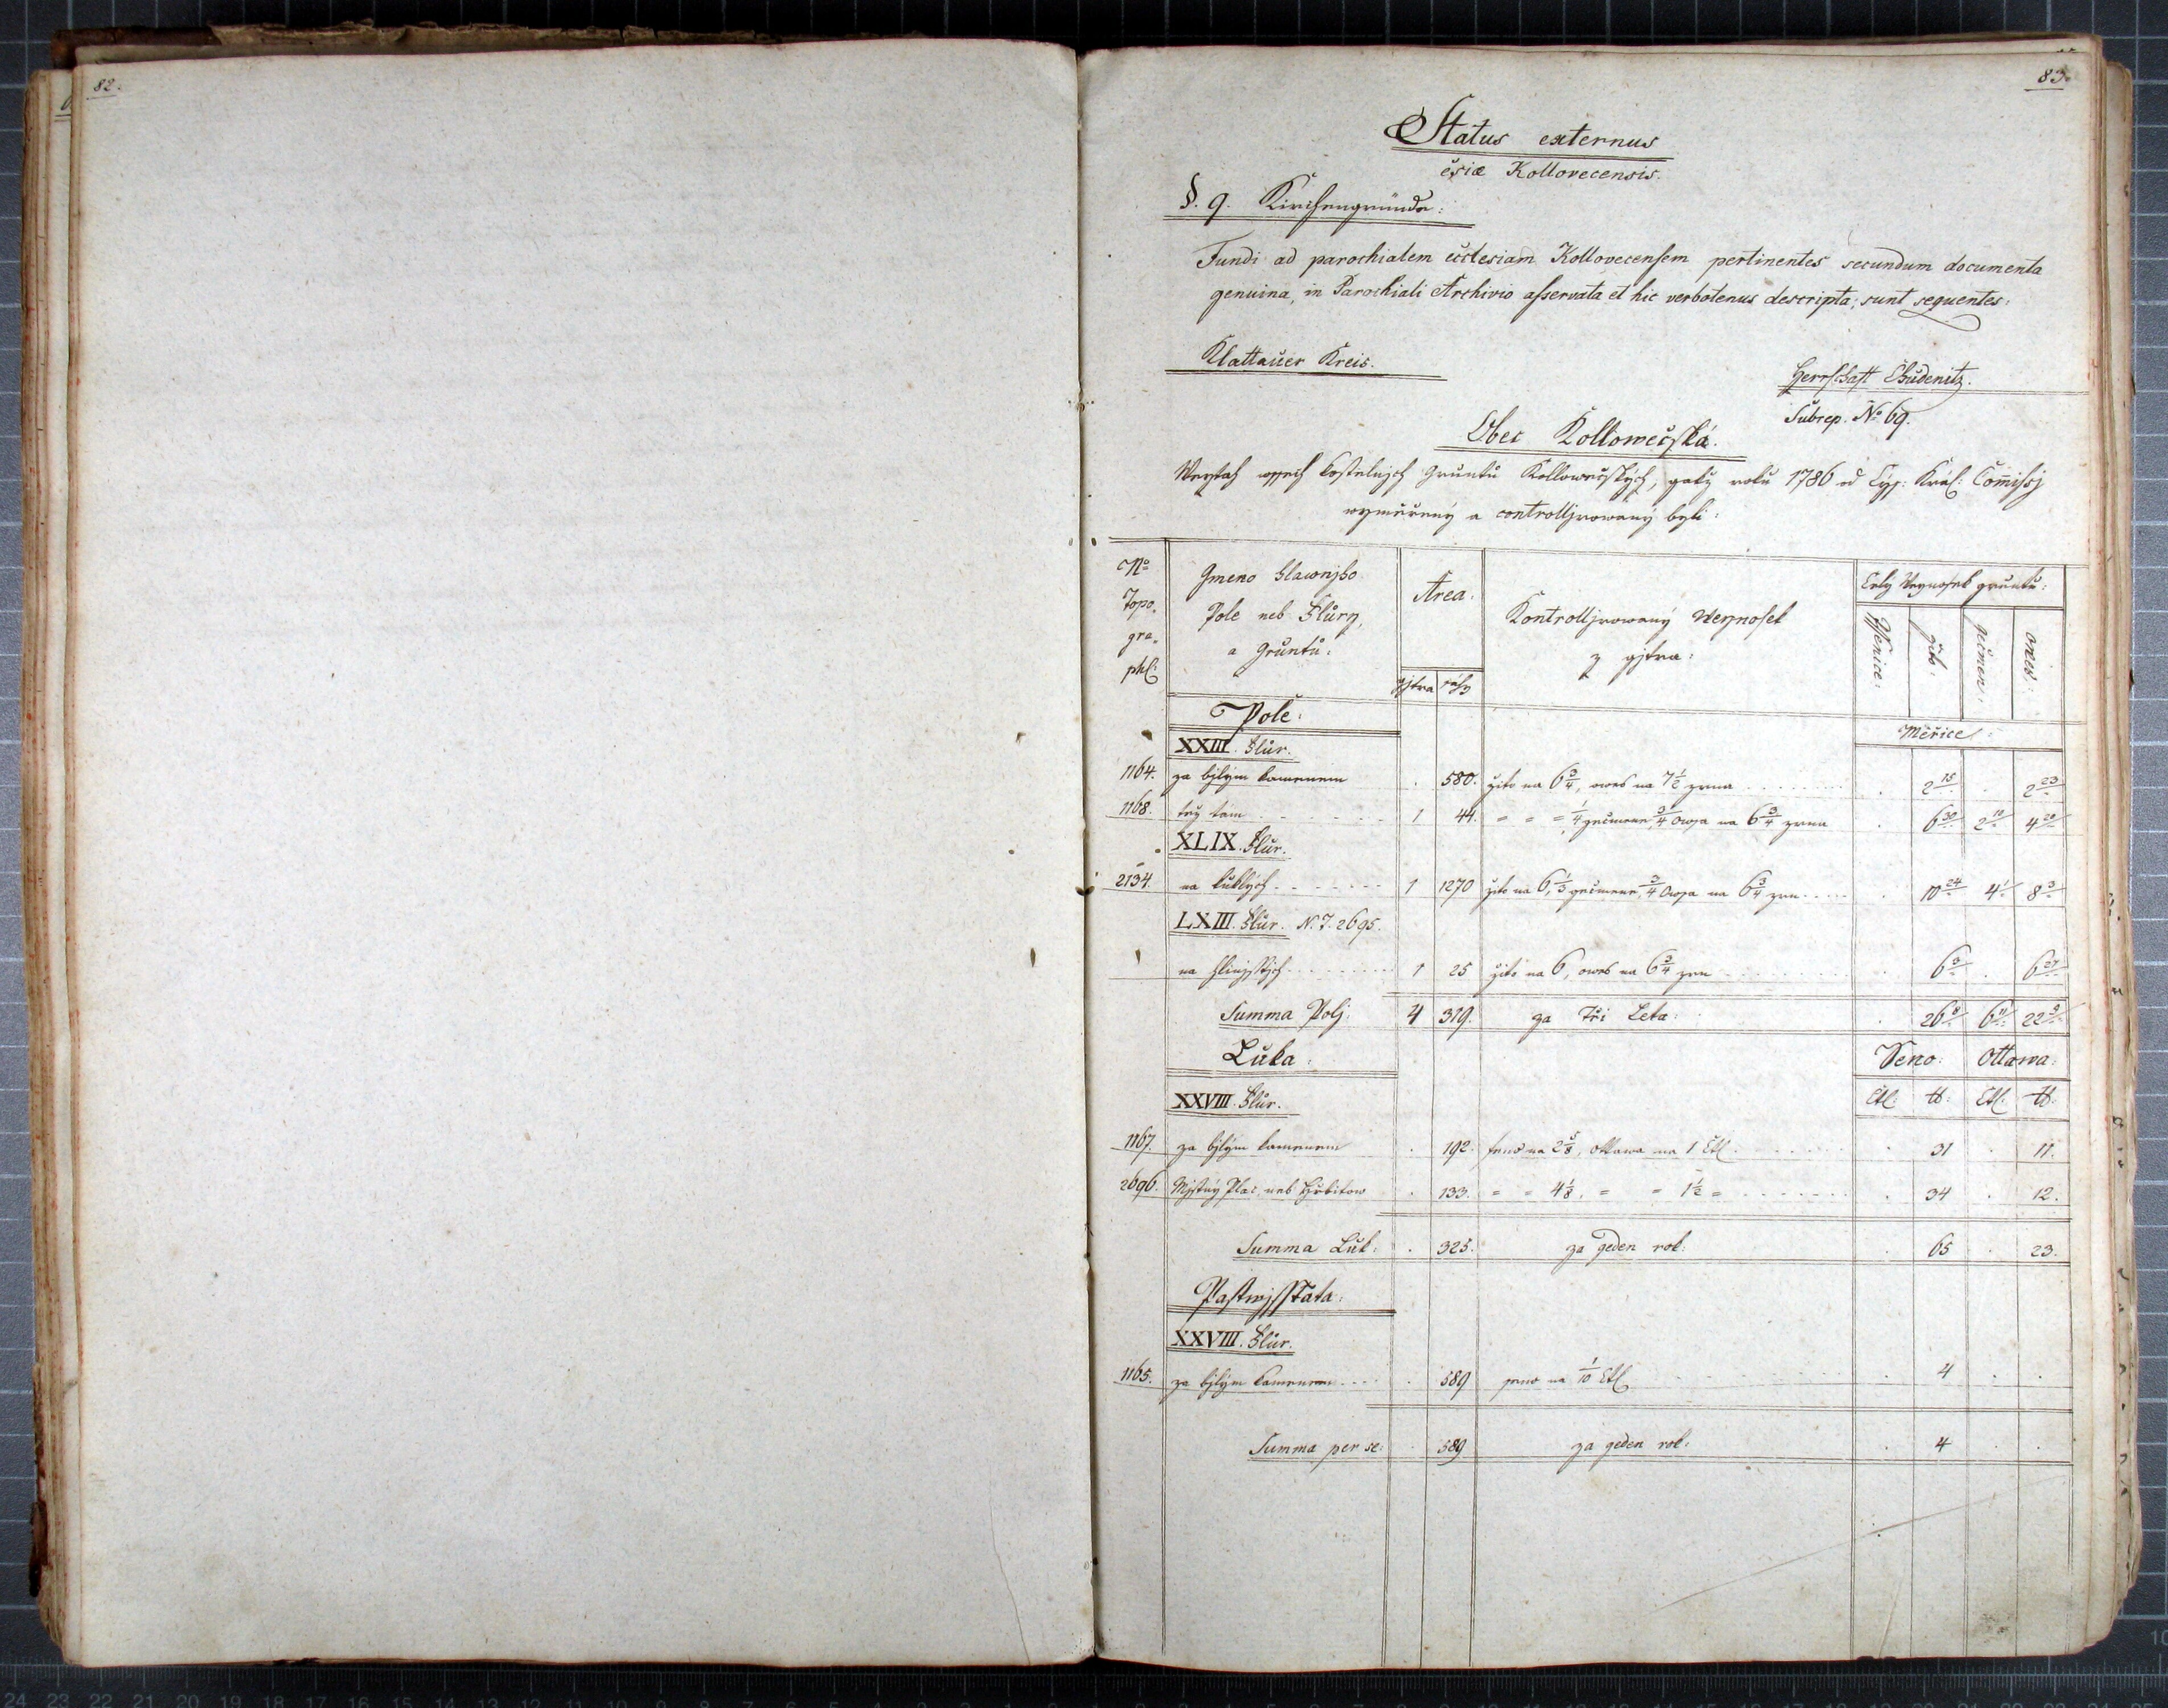 82.
83.
Status externus
ẽsiæ Kollovecensis.
§. 9. Kirchengründe:
Fundi ad parochialem ecclesiam Kollovecensem pertinentes secundum documenta
genuina, in Parochiali Archivio asservata et hic verbotenus descripta, sunt sequentes:
Klattauer Kreis.
Herrschaft Chudenitz.
Subrep. No 69.
Obec Kollowečska.
Weytah wssech kostelnjch Gruntů Kollowečskych, gaky roku 1786 od Cys: Král: Com̃issj
wyměřený a controlljrowaný byli:
No Topo„ gra„ ph:
Gmeno hlawnjho Pole neb Flůry, a Gruntů:
Area.
gjtra sáhy
Kontrolljrowaný Weynosek z gjtra:
Cely Weynosek gruntů:
Pssenice: žito: gečmen: oves:
Měřice:
Pole:
XXIII. Flůr.
1164. za bjlým kamenem . 580. žito na 6 3/4, oves na 7 1/2 zrna . 2 15 . 2 23
1168. tež tam 1 44. = = = 1/4 gečmene, 3/4 owsa na 6 3/4 zrna . 6 30 2 10 4 20
XLIX. Flůr.
2134. na kuklých 1 1270 žito na 6, 1/3 gečmene, 3/4 owsa na 6 3/4 zrn . 10 24 4 1 8 3
LXIII. Flůr. N. T. 2695.
na hlinsstjch 1 25 žito na 6, owes na 6 3/4 zrn . 6 3 . 6 27
Summa Polj: 4 319. za Tři Leta: . 26 8 6 11 22 9
Luka:
Seno: Ottawa:
XXVIII. Flůr.
Ctl: ℔: Ctl: ℔:
1167. za bjlým kamenem . 192. seno na 2 5/8, ottawa na 1 Ctl . 31 . 11.
2696. Mjstný Plac, neb Hřbitow . 133. = = 4 1/8, = = 1 1/2 = . 34 . 12.
Summa Luk: . 325. za geden rok: . 65 . 23.
Pastwjsstata:
XXVIII. Flůr.
1165. za bjlým kamenem . 589 seno na 1/10 Ctl . 4 . .
Summa per se: . 589 za geden rok: . 4 . .
24 23 22 21 20 19 18 17 16 15 14 13 12 11 10 9 8 7 6 5 4 3 2 1